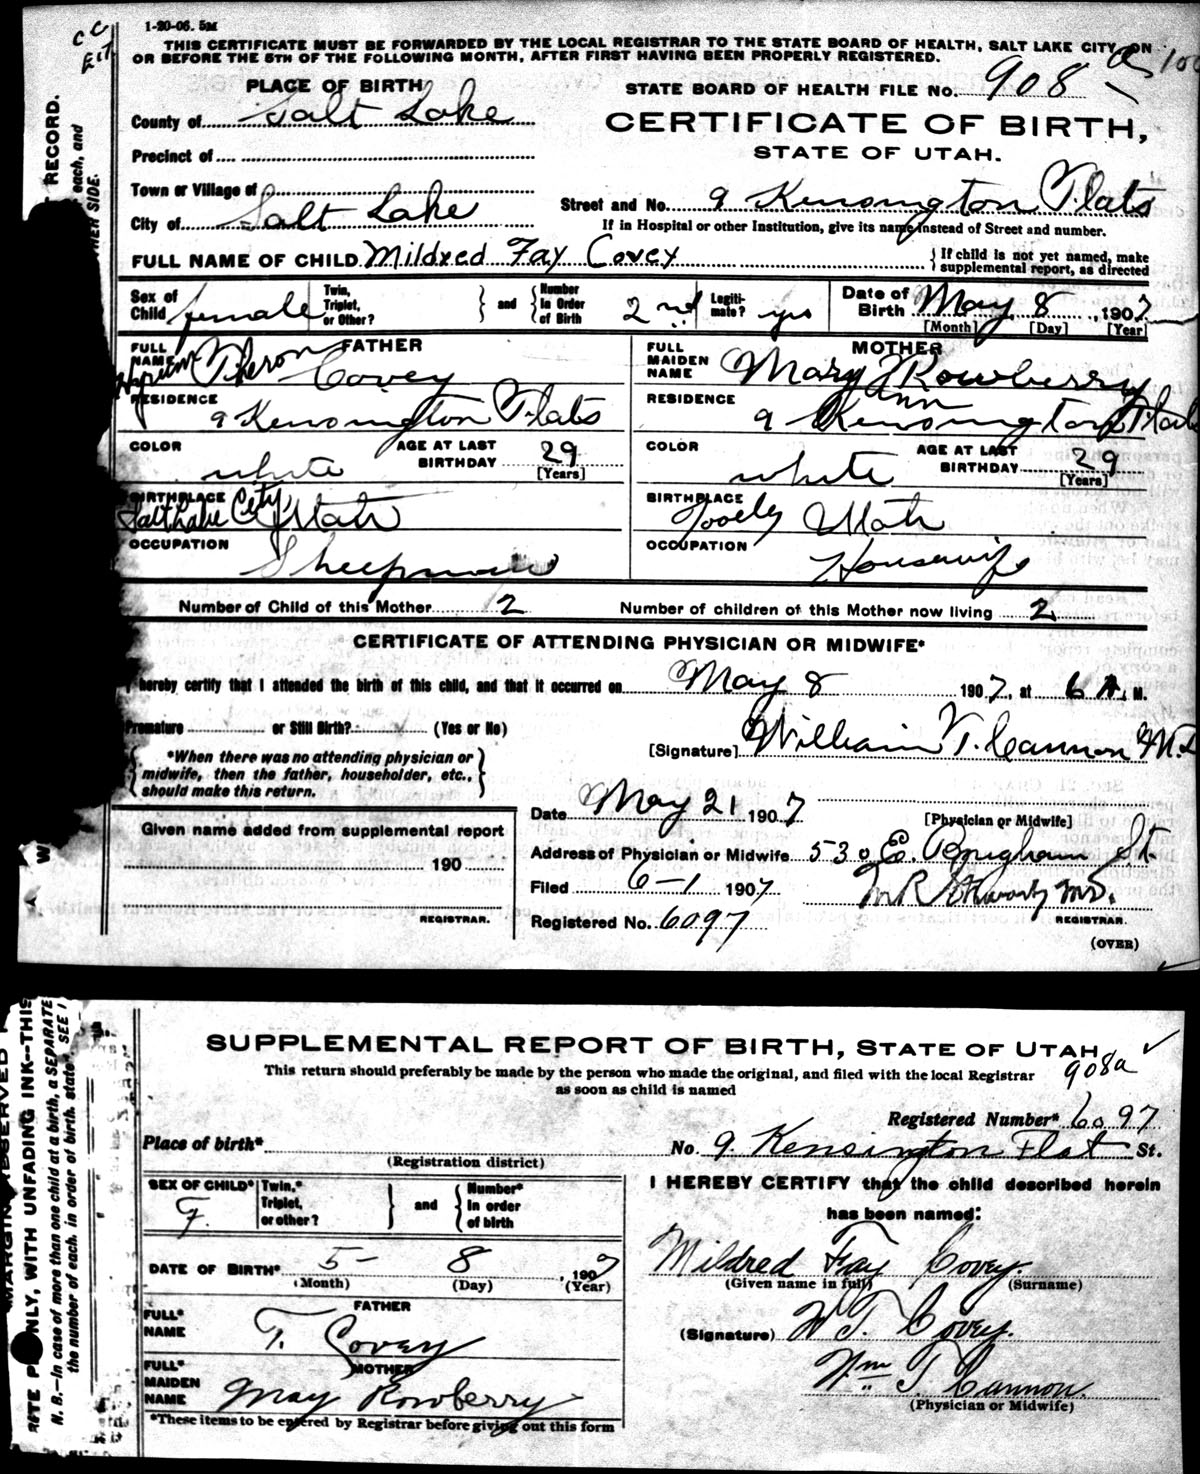 1-20-06. 5M
THIS CERTIFICATE MUST BE FORWARDED BY THE LOCAL REGISTRAR TO THE STATE BOARD OF HEALTH, SALT LAKE CITY, ON
OR BEFORE THE 5TH OF THE FOLLOWING MONTH, AFTER FIRST HAVING BEEN PROPERLY REGISTERED.
PLACE OF BIRTH
STATE BOARD OF HEALTH FILE No. 908
County of Salt Lake
CERTIFICATE OF BIRTH,
STATE OF UTAH.
Precinct of
Town or Village of
City of Salt Lake
Street and No. 9 Kensington Flats
If in Hospital or other Institution, give its name instead of Street and number.
FULL NAME OF CHILD Mildred Fay Covey
If child is not yet named, make supplemental report, as directed
Sex of Child female Twin, Triplet, or Other? and Number in Order of Birth 2nd Legitimate? yes Date of Birth May 8, 1907
[Month] [Day] [Year]
FATHER
FULL NAME Theron Covey
RESIDENCE 9 Kensington Flats
COLOR white AGE AT LAST BIRTHDAY 29 [Years]
BIRTHPLACE Salt Lake City, Utah
OCCUPATION Sheepman
MOTHER
FULL MAIDEN NAME Mary Ann Rowberry
RESIDENCE 9 Kensington Flats
COLOR white AGE AT LAST BIRTHDAY 29 [Years]
BIRTHPLACE Tooele, Utah
OCCUPATION Housewife
Number of Child of this Mother 2 Number of children of this Mother now living 2
CERTIFICATE OF ATTENDING PHYSICIAN OR MIDWIFE*
I hereby certify that I attended the birth of this child, and that it occurred on May 8 1907, at 6 A. M.
Premature or Still Birth? (Yes or No)
[Signature] William T. Cannon M.D.
*When there was no attending physician or
midwife, then the father, householder, etc.,
should make this return.
Date May 21 1907
[Physician or Midwife]
Given name added from supplemental report
190
REGISTRAR.
Address of Physician or Midwife 530 E. Brigham St.
Filed 6-1 1907
M.D.
REGISTRAR.
Registered No. 6097
(OVER)
SUPPLEMENTAL REPORT OF BIRTH, STATE OF UTAH
908a
This return should preferably be made by the person who made the original, and filed with the local Registrar
as soon as child is named
Registered Number* 6097
Place of birth*
(Registration district)
No. 9. Kensington Flat St.
SEX OF CHILD* F. Twin,* Triplet, or other? and Number* in order of birth
I HEREBY CERTIFY that the child described herein
has been named:
DATE OF BIRTH* 5- 8, 1907
(Month) (Day) (Year)
Mildred Fay Covey.
(Given name in full) (Surname)
FATHER
FULL* NAME T. Covey
(Signature) Covey.
MOTHER
FULL* MAIDEN NAME May Rowberry
Wm T. Cannon.
(Physician or Midwife)
*These items to be entered by Registrar before giving out this form
RECORD.
each, and
ONLY, WITH UNFADING INK—THIS
N. B.—In case of more than one child at a birth, a SEPARATE
the number of each, in order of birth, stated. SEE